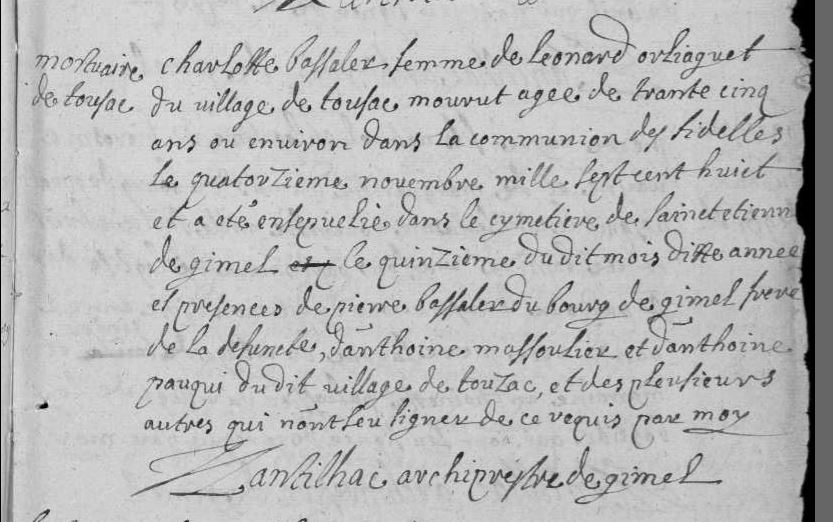 mortuaire charlotte bassaler femme de leonard orliaguet
de tousac du village de tousac mourut agee de trante cinq
ans ou environ dans la communion des fidelles
le quatorzieme novembre mille sept cent huict
et a eté ensepuelie dans le cymetiere de sainct etienn
de gimel le quinzieme du dit mois ditte annee
es presences de pierre bassaler du bourg de gimel frere
de la defuncte, d'anthoine massoulier et d'anthoine
pauqui du dit village de touzac, et des pleusieurs
autres qui n'ont seu signer de ce requis par moy
archiprestre de gimel